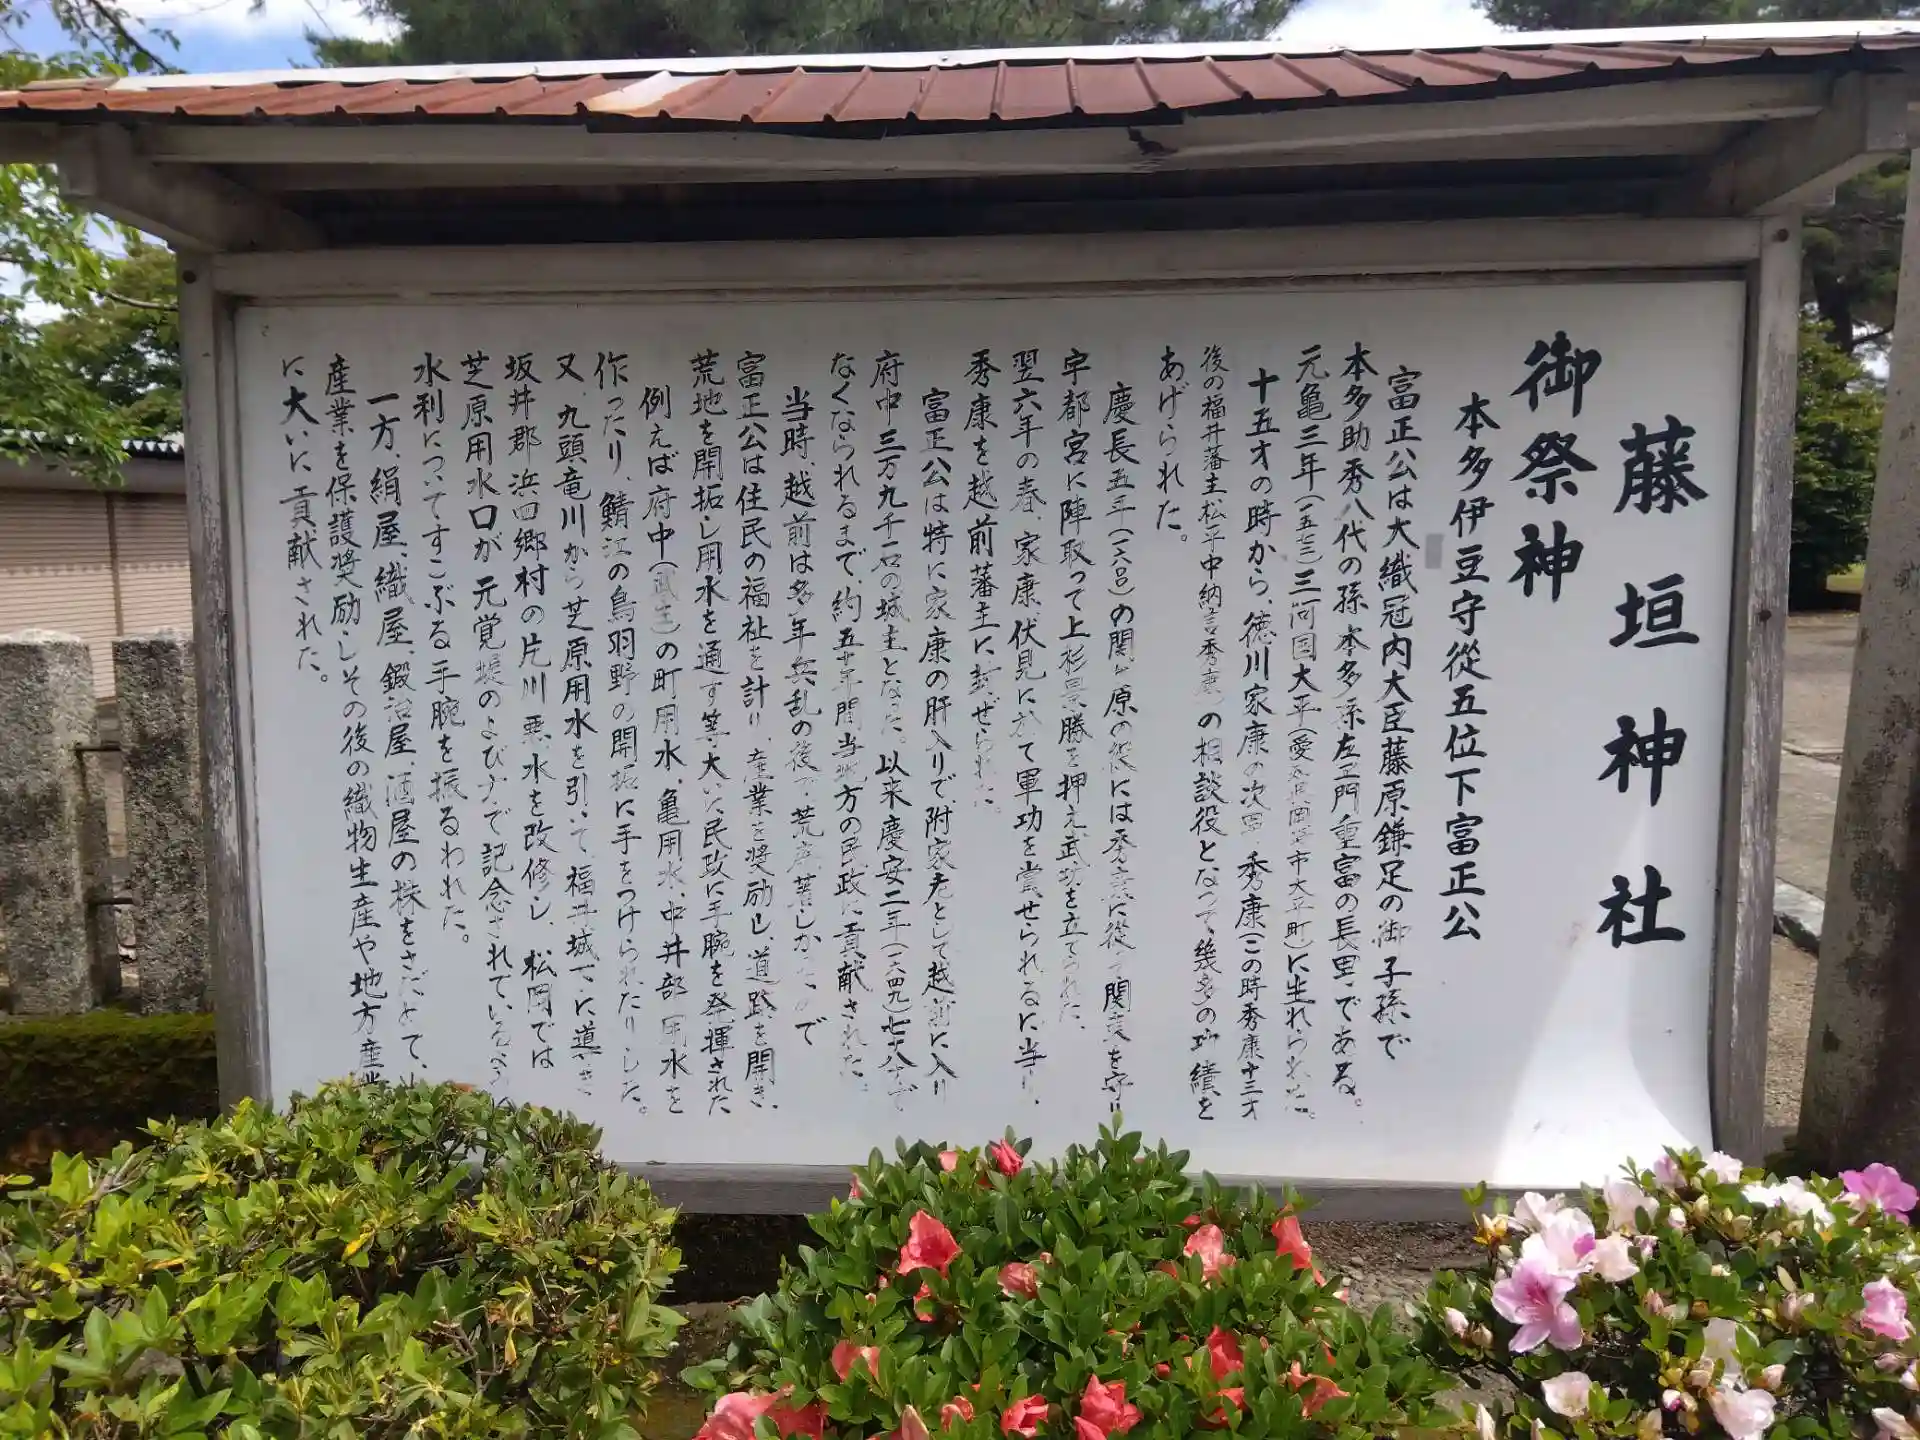 藤垣神社
御祭神
本多伊豆守從五位下富正公
富正公は大織冠内大臣藤原鎌足の御子孫で
本多助秀八代の孫本多孫左エ門重富の長男である。
元亀三年(一五七三)三河国大平(愛知県岡崎市大平町)に生れられた。
十五才の時から、徳川家康の次男、秀康(この時秀康十三才
後の福井藩主松平中納言秀康)の相談役となって幾多の功績を
あげられた。
慶長五年(一六〇〇)の関ヶ原の役には秀康に従って関東を守り
宇都宮に陣取って上杉景勝を押え武功を立てられた、
翌六年の春、家康、伏見に於て軍功を賞せられるに当り、
秀康を越前藩主に封ぜられた。
富正公は特に家康の肝入りで、附家老として越前に入り
府中三万九千石の城主となった。以来慶安二年(一六四九)七十八才で
なくなられるまで、約五十年間当地方の民政に貢献された。
当時、越前は多年兵乱の後で、荒廃著しかったので
富正公は住民の福祉を計り、産業を奨励し、道路を開き、
荒地を開拓し用水を通す等大いに民政に手腕を発揮された
例えば府中(武生)の町用水、亀用水、中井部用水を
作ったり、鯖江の鳥羽野の開拓に手をつけられたりした。
又、九頭竜川から芝原用水を引いて、福井城下に導き
坂井郡浜四郷村の片川悪水を改修し、松岡では
芝原用水口が元覚堤のよび名で記念されている
水利についてすこぶる手腕を振るわれた。
一方、絹屋、織屋、鍛冶屋、酒屋の株をさだめて、
産業を保護奨励しその後の織物生産や地方産業
に大いに貢献された。